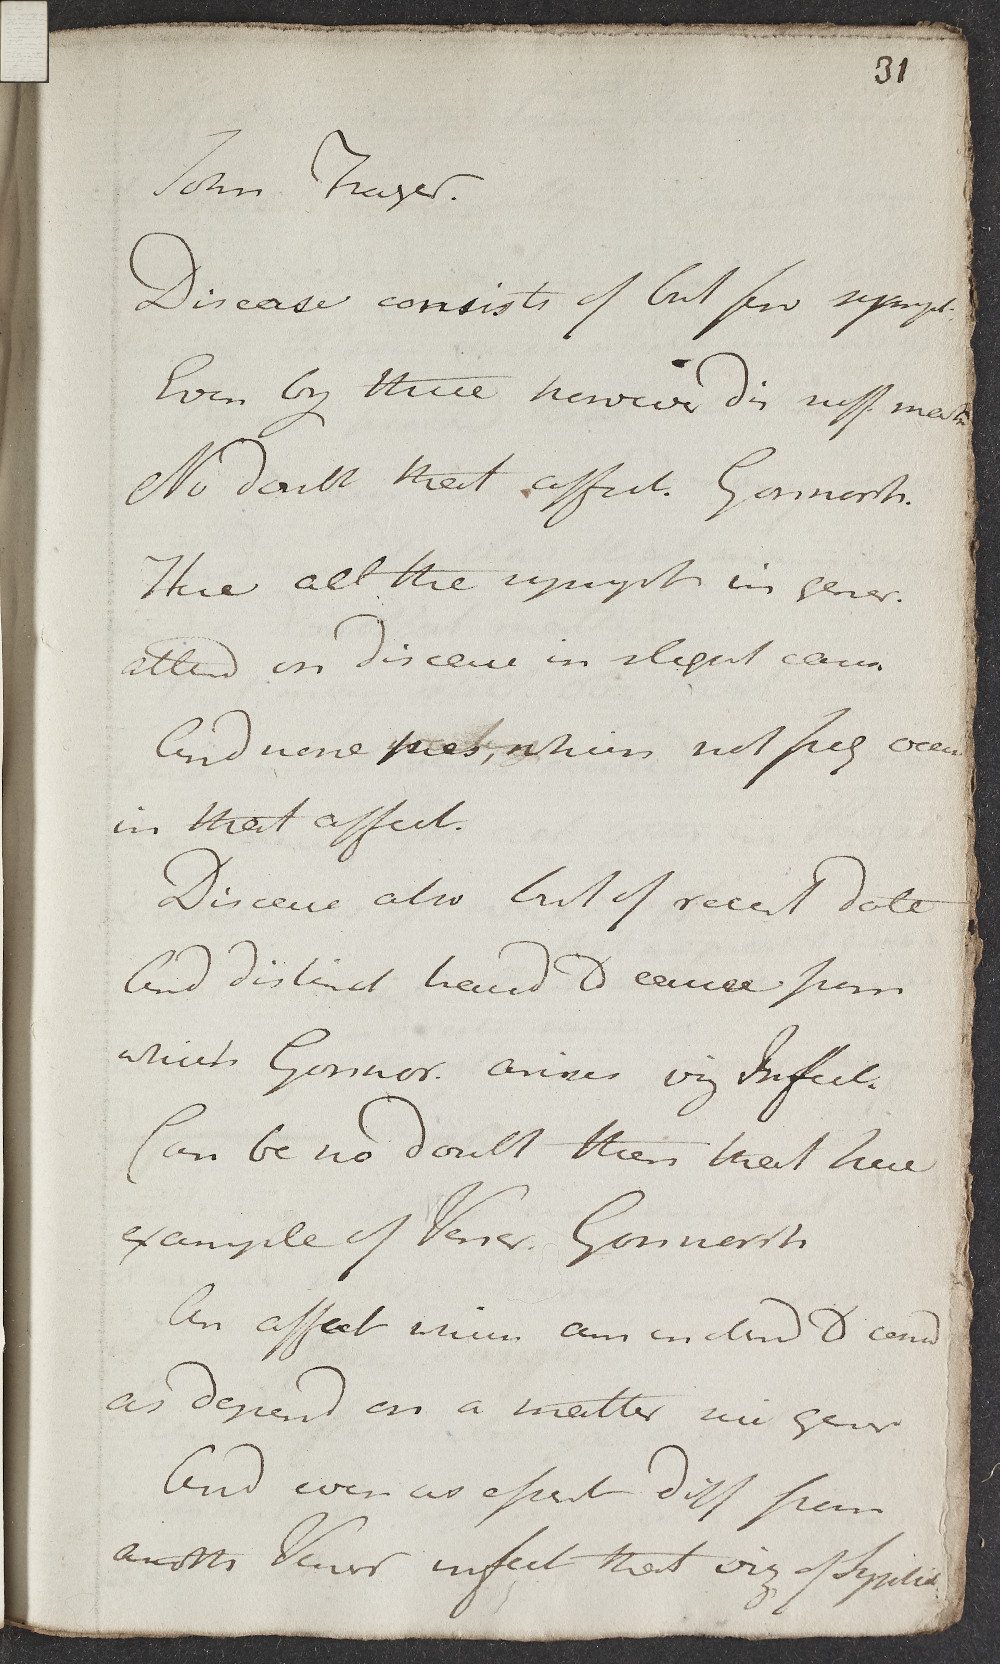 31
John Frazer.
Disease consists of but few sympt.
Even by these however dis suff. mark
No doubt that affect. Gonnorh.
Here all the sympt in gener.
attend on disease in slight cases
And none pres, which not freq occur
in that affect.
Disease also but of recent date
And distinct traced to cause from
which Gonnor. arises viz Infect.
Can be no doubt then that here
example of Vener. Gonnorrh
An affect which am inclind to consid
as depend on a matter sui gener
And even as espect diff from
anoth Vener infect that viz of Syphilis